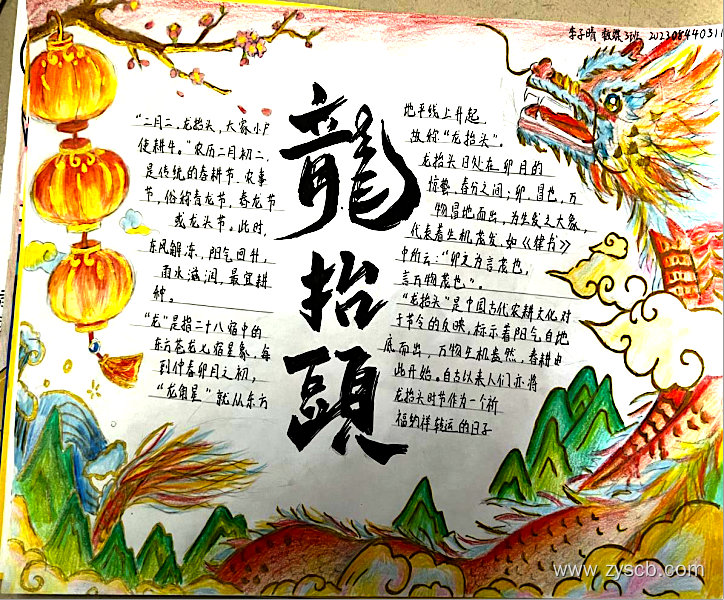 李子晴 数媒3班 202308440311
龍
抬
頭
“二月二，龙抬头，大家小户
使耕牛。”农历二月初二，
是传统的春耕节、农事
节，俗称青龙节，春龙节
或龙头节。此时，
东风解冻，阳气回升，
雨水滋润，最宜耕
种。
“龙”是指二十八宿中的
东方苍龙七宿星象，每
到仲春卯月之初，
“龙角星”就从东方
地平线上升起，
故称“龙抬头”。
龙抬头日处在卯月的
惊蛰、春分之间；卯，冒也，万
物冒地而出，为生发之大象，
代表着生机茂发，如《律书》
中所云：“卯之为言茂也，
言万物茂也”。
“龙抬头”是中国古代农耕文化对
于节令的反映，标示着阳气自地
底而出，万物生机盎然，春耕由
此开始。自古以来人们亦将
龙抬头时节作为一个祈
福纳祥转运的日子
www.zyscb.com